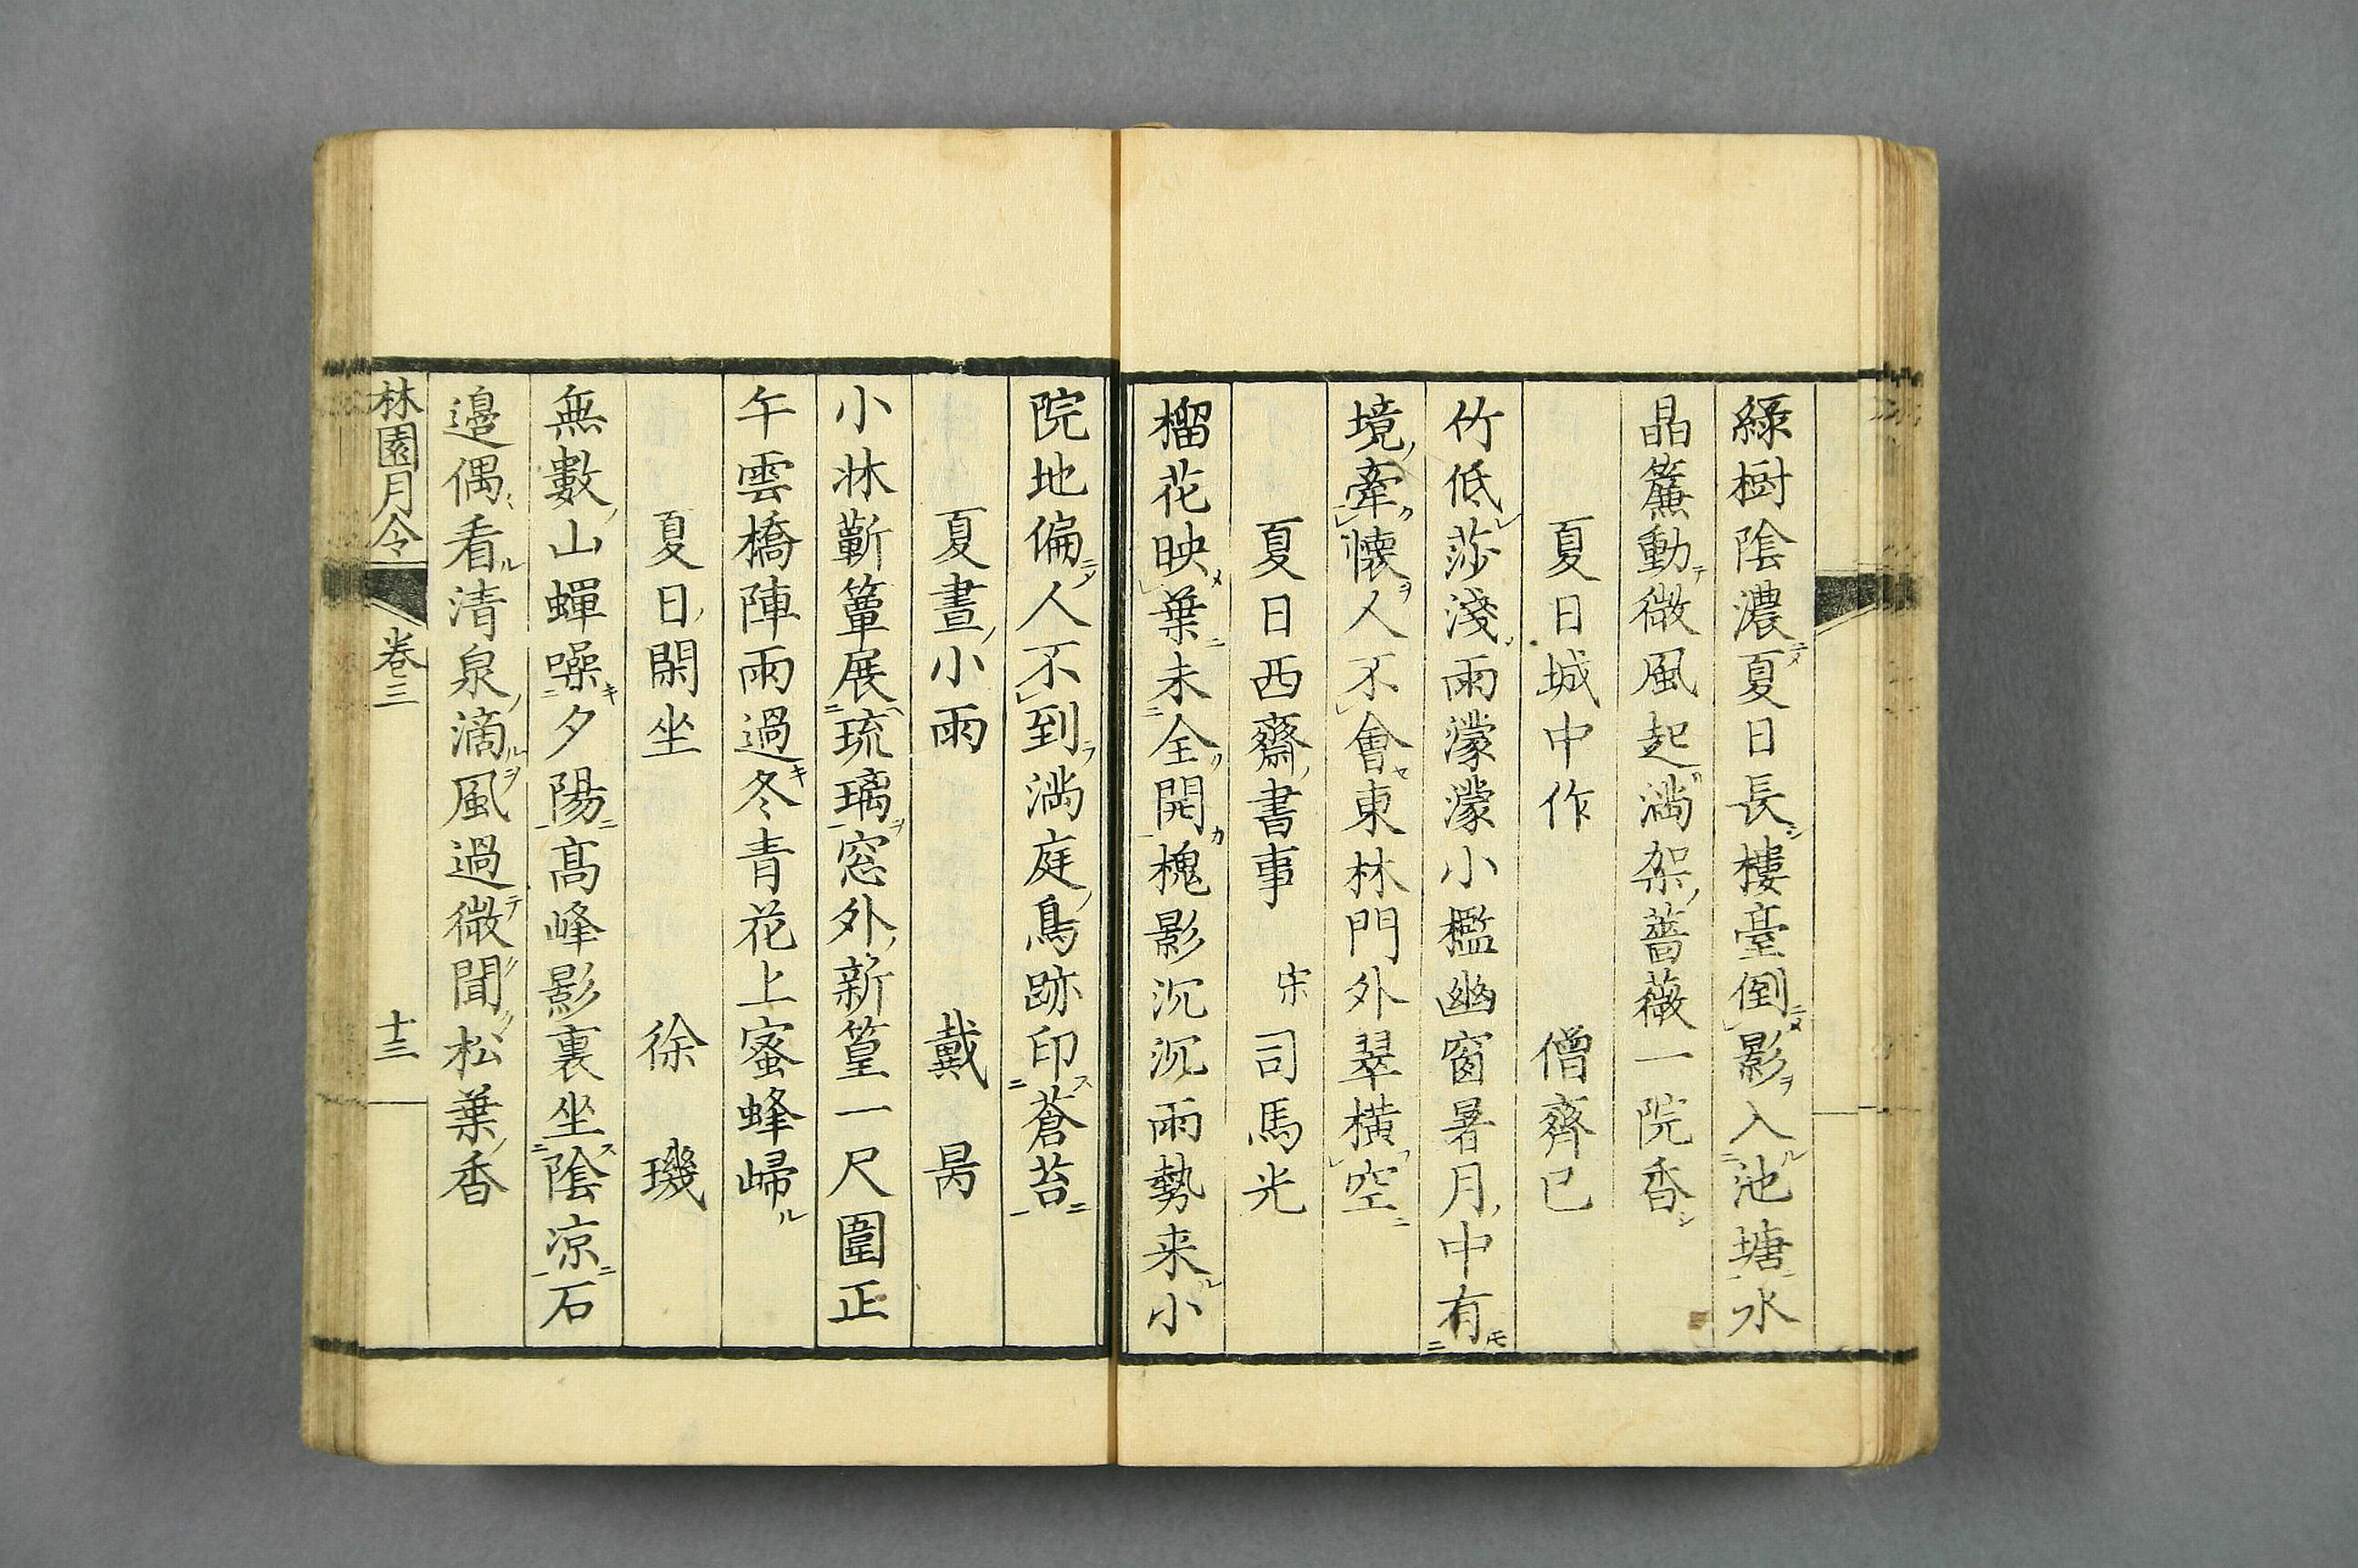 綠樹陰濃夏日長樓臺倒影入池塘水
晶簾動微風起滿架薔薇一院香
夏日城中作　僧齊已
竹低莎淺雨濛濛小檻幽窗暑月中有
境牽懷人不會東林門外翠橫空
夏日西齋書事　宋　司馬光
榴花映葉未全開槐影沉沉雨勢来小
院地偏人不到滿庭鳥跡印蒼苔
夏晝小雨　戴昺
小牀蘄簟展琉璃窓外新篁一尺圍正
午雲橋陣雨過冬青花上蜜蜂歸
夏日閑坐　徐璣
無數山蟬噪夕陽髙峰影裏坐陰凉石
邉偶看清泉滴風過微聞松葉香
林園月令　卷三　十三